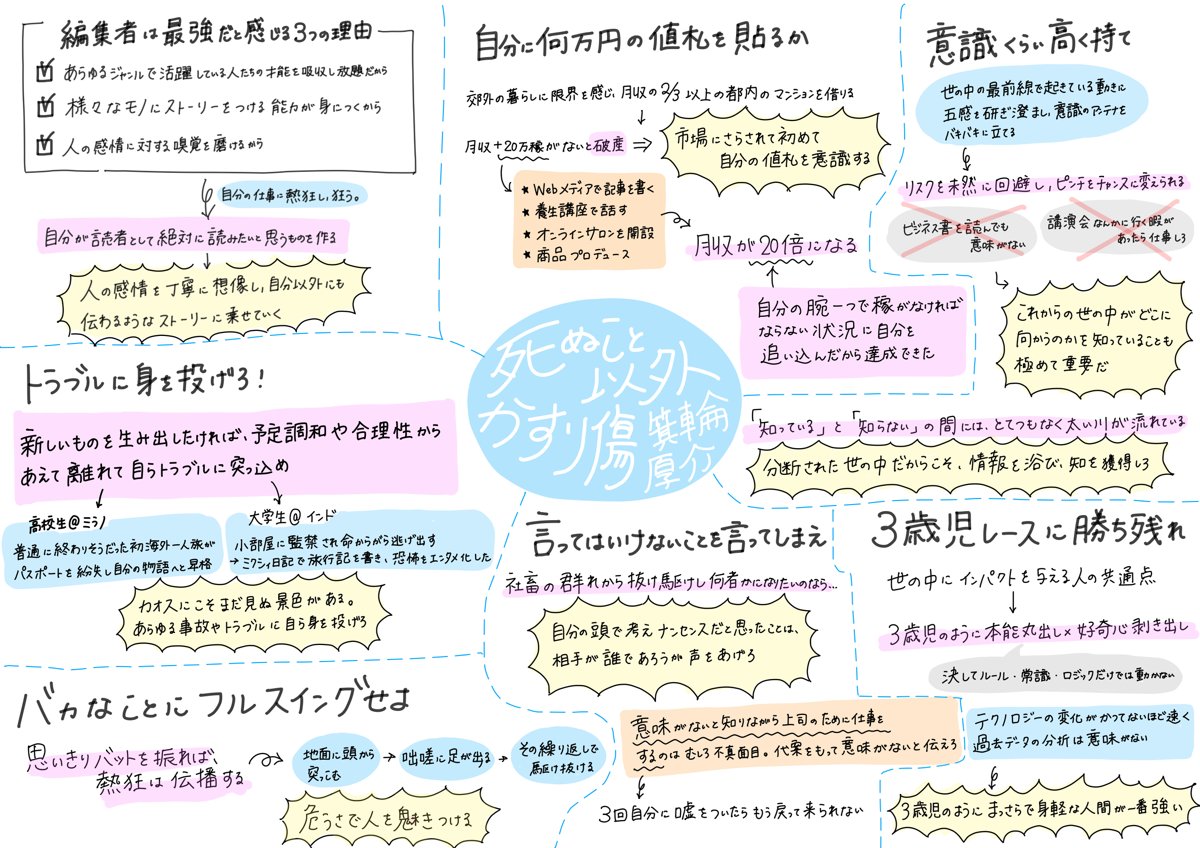 編集者は最強だと感じる3つの理由
あらゆるジャンルで活躍している人たちの才能を吸収し放題だから
様々なモノにストーリーをつける能力が身につくから
人の感情に対する嗅覚を磨けるから
自分の仕事に熱狂し、狂う。
自分が読者として絶対に読みたいと思うものを作る
人の感情を丁寧に想像し、自分以外にも
伝わるようなストーリーに乗せていく
自分に何万円の値札を貼るか
郊外の暮らしに限界を感じ、月収の2/3以上の都内のマンションを借りる
月収+20万稼がないと破産
市場にさらされて初めて
自分の値札を意識する
★Webメディアで記事を書く
★養生講座で話す
★オンラインサロンを開設
★商品プロデュース
月収が20倍になる
自分の腕一つで稼がなければ
ならない状況に自分を
追い込んだから達成できた
意識くらい高く持て
世の中の最前線で起きている動きに
五感を研ぎ澄まし、意識のアンテナを
バキバキに立てる
リスクを未然に回避し、ピンチをチャンスに変えられる
ビジネス書を読んでも
意味がない
講演会なんかに行く暇が
あったら仕事しろ
これからの世の中がどこに
向からのかを知っていることも
極めて重要だ
「知っている」と「知らない」の間には、とてつもなく太い川が流れている
分断された世の中だからこそ、情報を浴び、知を獲得しろ
死ぬこと
以外
かすり傷
箕輪
厚介
トラブルに身を投げろ!
新しいものを生み出したければ、予定調和や合理性から
あえて離れて自らトラブルに突っ込め
高校生@ミラノ
普通に終わりそうだった初海外一人旅が
パスポートを紛失し自分の物語へと昇格
大学生@インド
小部屋に監禁され命からがら逃げ出す
→ミクシィ日記で旅行記を書き、恐怖をエンタメ化した
カオスにこそまだ見ぬ景色がある。
あらゆる事故やトラブルに自ら身を投げろ
言ってはいけないことを言ってしまえ
社畜の群れから抜け駆けし何者かになりたいのなら…
自分の頭で考えナンセンスだと思ったことは、
相手が誰であろうが声をあげろ
意味がないと知りながら上司のために仕事を
するのはむしろ不真面目。代案をもって意味がないと伝える
3回自分に嘘をついたらもう戻って来られない
3歳児レースに勝ち残れ
世の中にインパクトを与える人の共通点
3歳児のように本能丸出し×好奇心剥き出し
決してルール・常識・ロジックだけでは動かない
テクノロジーの変化がかつてないほど速く
過去データの分析は意味がない
3歳児のようにまっさらで身軽な人間が一番強い
バカなことにフルスイングせよ
思いきりバットを振れば、
熱狂は伝播する
地面に頭から
突っこも
咄嗟に足が出る
その繰り返しで
駆け抜ける
危うさで人を魅きつける